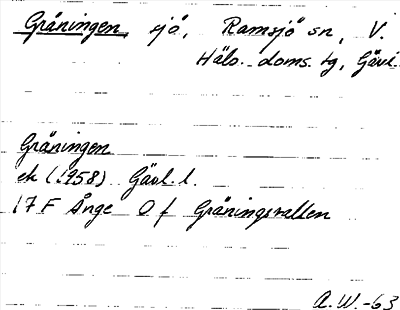 Gräningen, sjö, Ramsjö sn, V.
Häls. doms. tg, Gävl.
Gräningen
ek (1958) Gävl. l.
17 F Ånge O f Gräningsvallen
A.W.-63